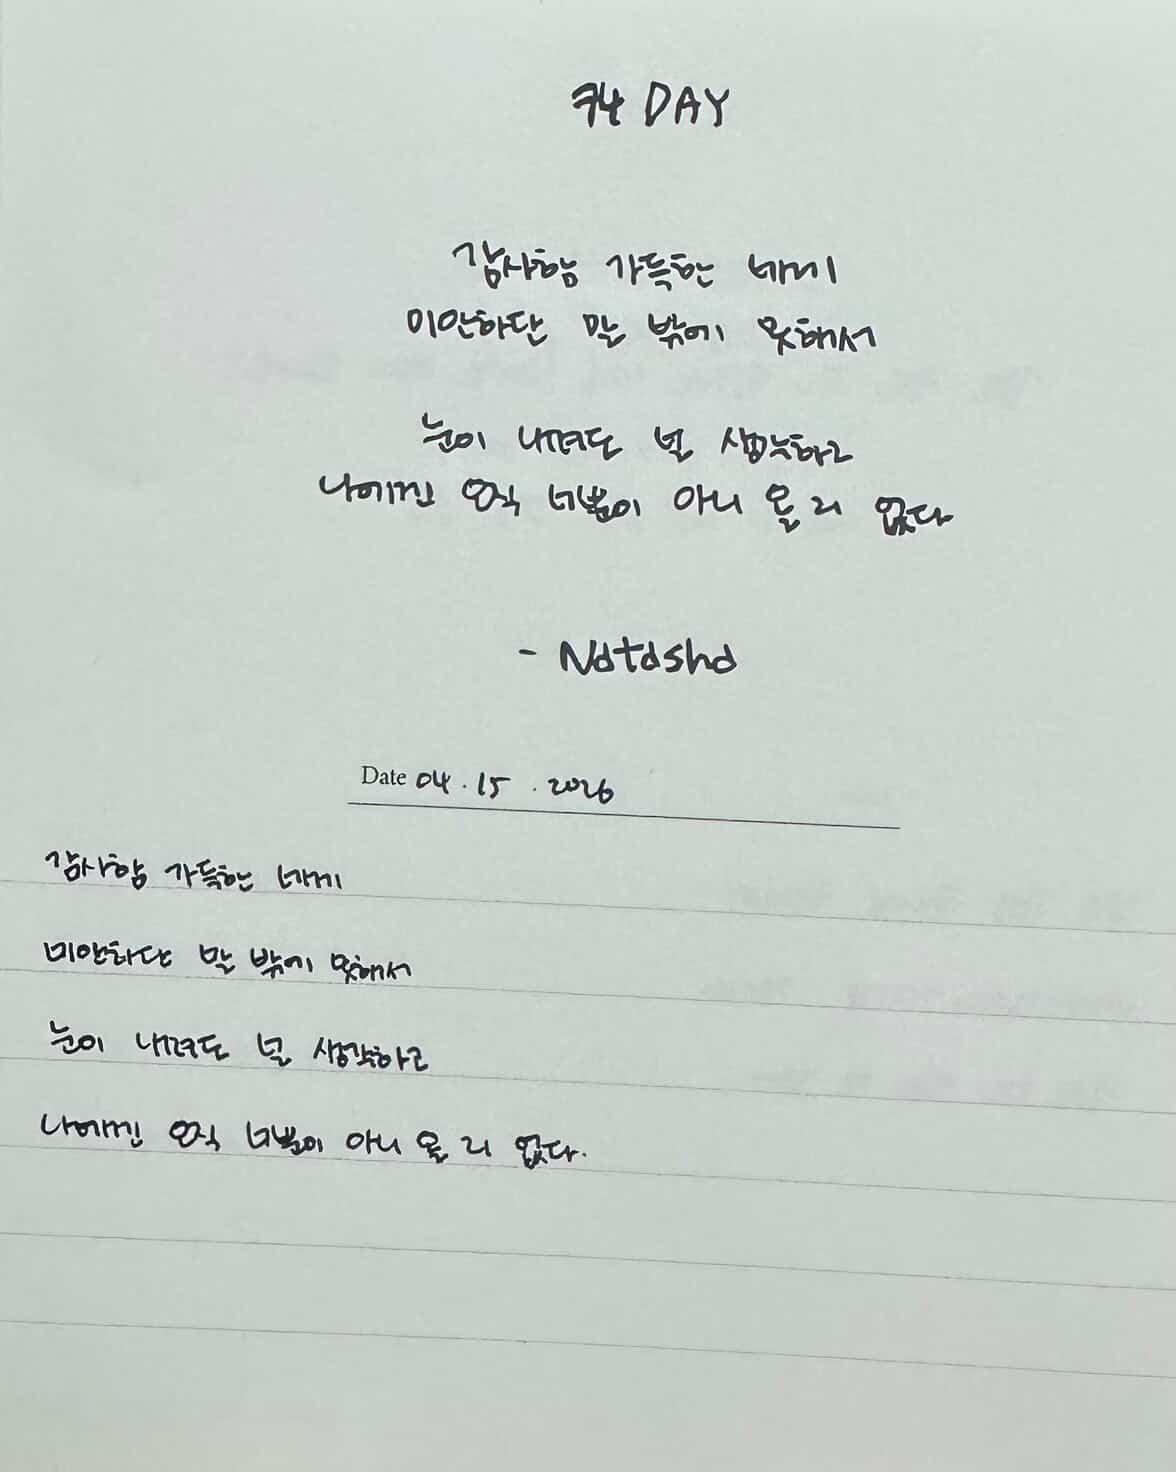 74 DAY
감사함 가득한 네게
미안하단 말 밖에 못해서
눈이 내려도 널 생각하고
나에겐 오직 너뿐이 아니 올 리 없다
- Natasha
Date 04.15.2026
감사함 가득한 네게
미안하단 말 밖에 못해서
눈이 내려도 널 생각하고
나에겐 오직 너뿐이 아니 올 리 없다.